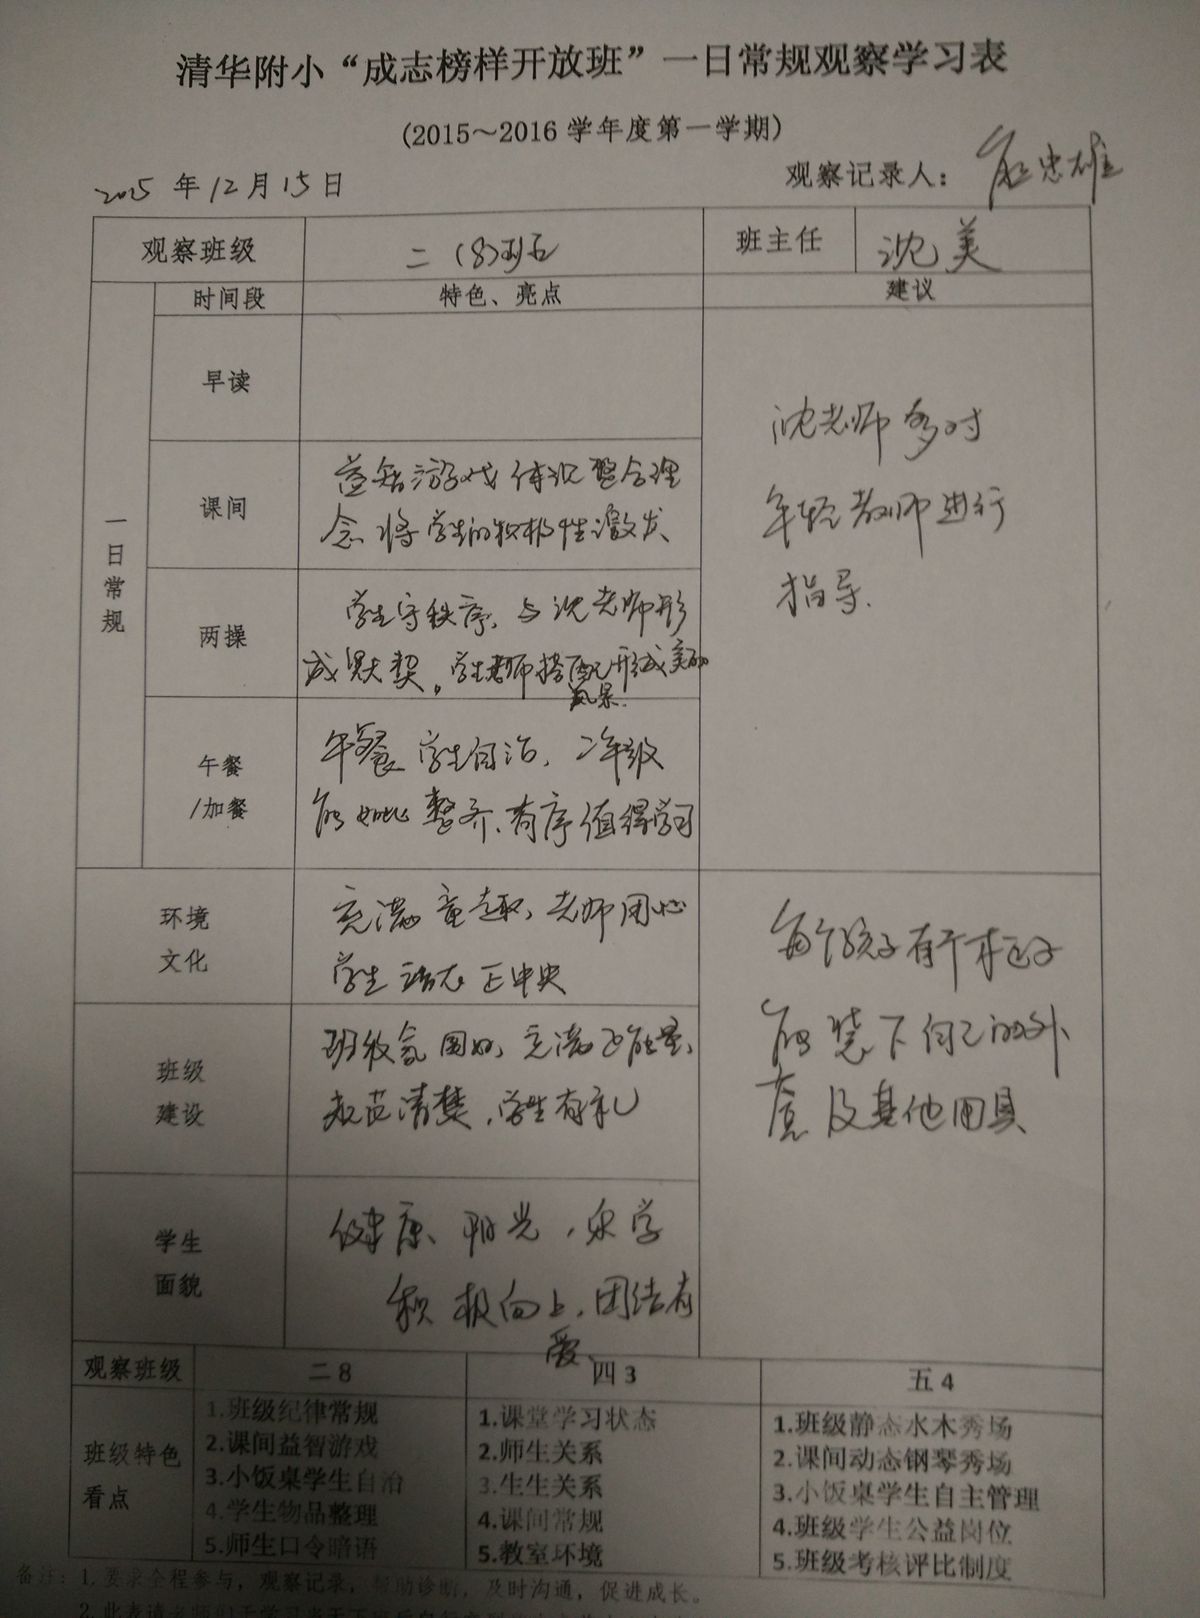 清华附小“成志榜样开放班”一日常规观察学习表
(2015～2016 学年度第一学期)
2015 年 12 月 15 日
观察记录人： 忠雄
观察班级 二（8）班 班主任 沈美
时间段 特色、亮点 建议
一日常规
早读
课间
益智游戏 体现整合理
念 将学生的积极性激发
两操
学生守秩序，与沈老师形
成默契。学生老师搭配形成美的
风景.
午餐
/加餐
午餐 学生自治，二年级
能如此整齐、有序值得学习
沈老师多对
年轻教师进行
指导.
环境
文化
充满童趣，老师用心
学生站在正中央
班级
建设
班级氛围好，充满正能量，
规范清楚，学生有礼
学生
面貌
健康、阳光，乐学
积极向上，团结友
爱、
每个孩子有个柜子
能 下自己的外
套及其他用具
观察班级 二 8 四 3 五 4
班级特色
看点
1.班级纪律常规
2.课间益智游戏
3.小饭桌学生自治
4.学生物品整理
5.师生口令暗语
1.课堂学习状态
2.师生关系
3.生生关系
4.课间常规
5.教室环境
1.班级静态水木秀场
2.课间动态钢琴秀场
3.小饭桌学生自主管理
4.班级学生公益岗位
5.班级考核评比制度
备注：1.要求全程参与，观察记录，帮助诊断，及时沟通，促进成长。